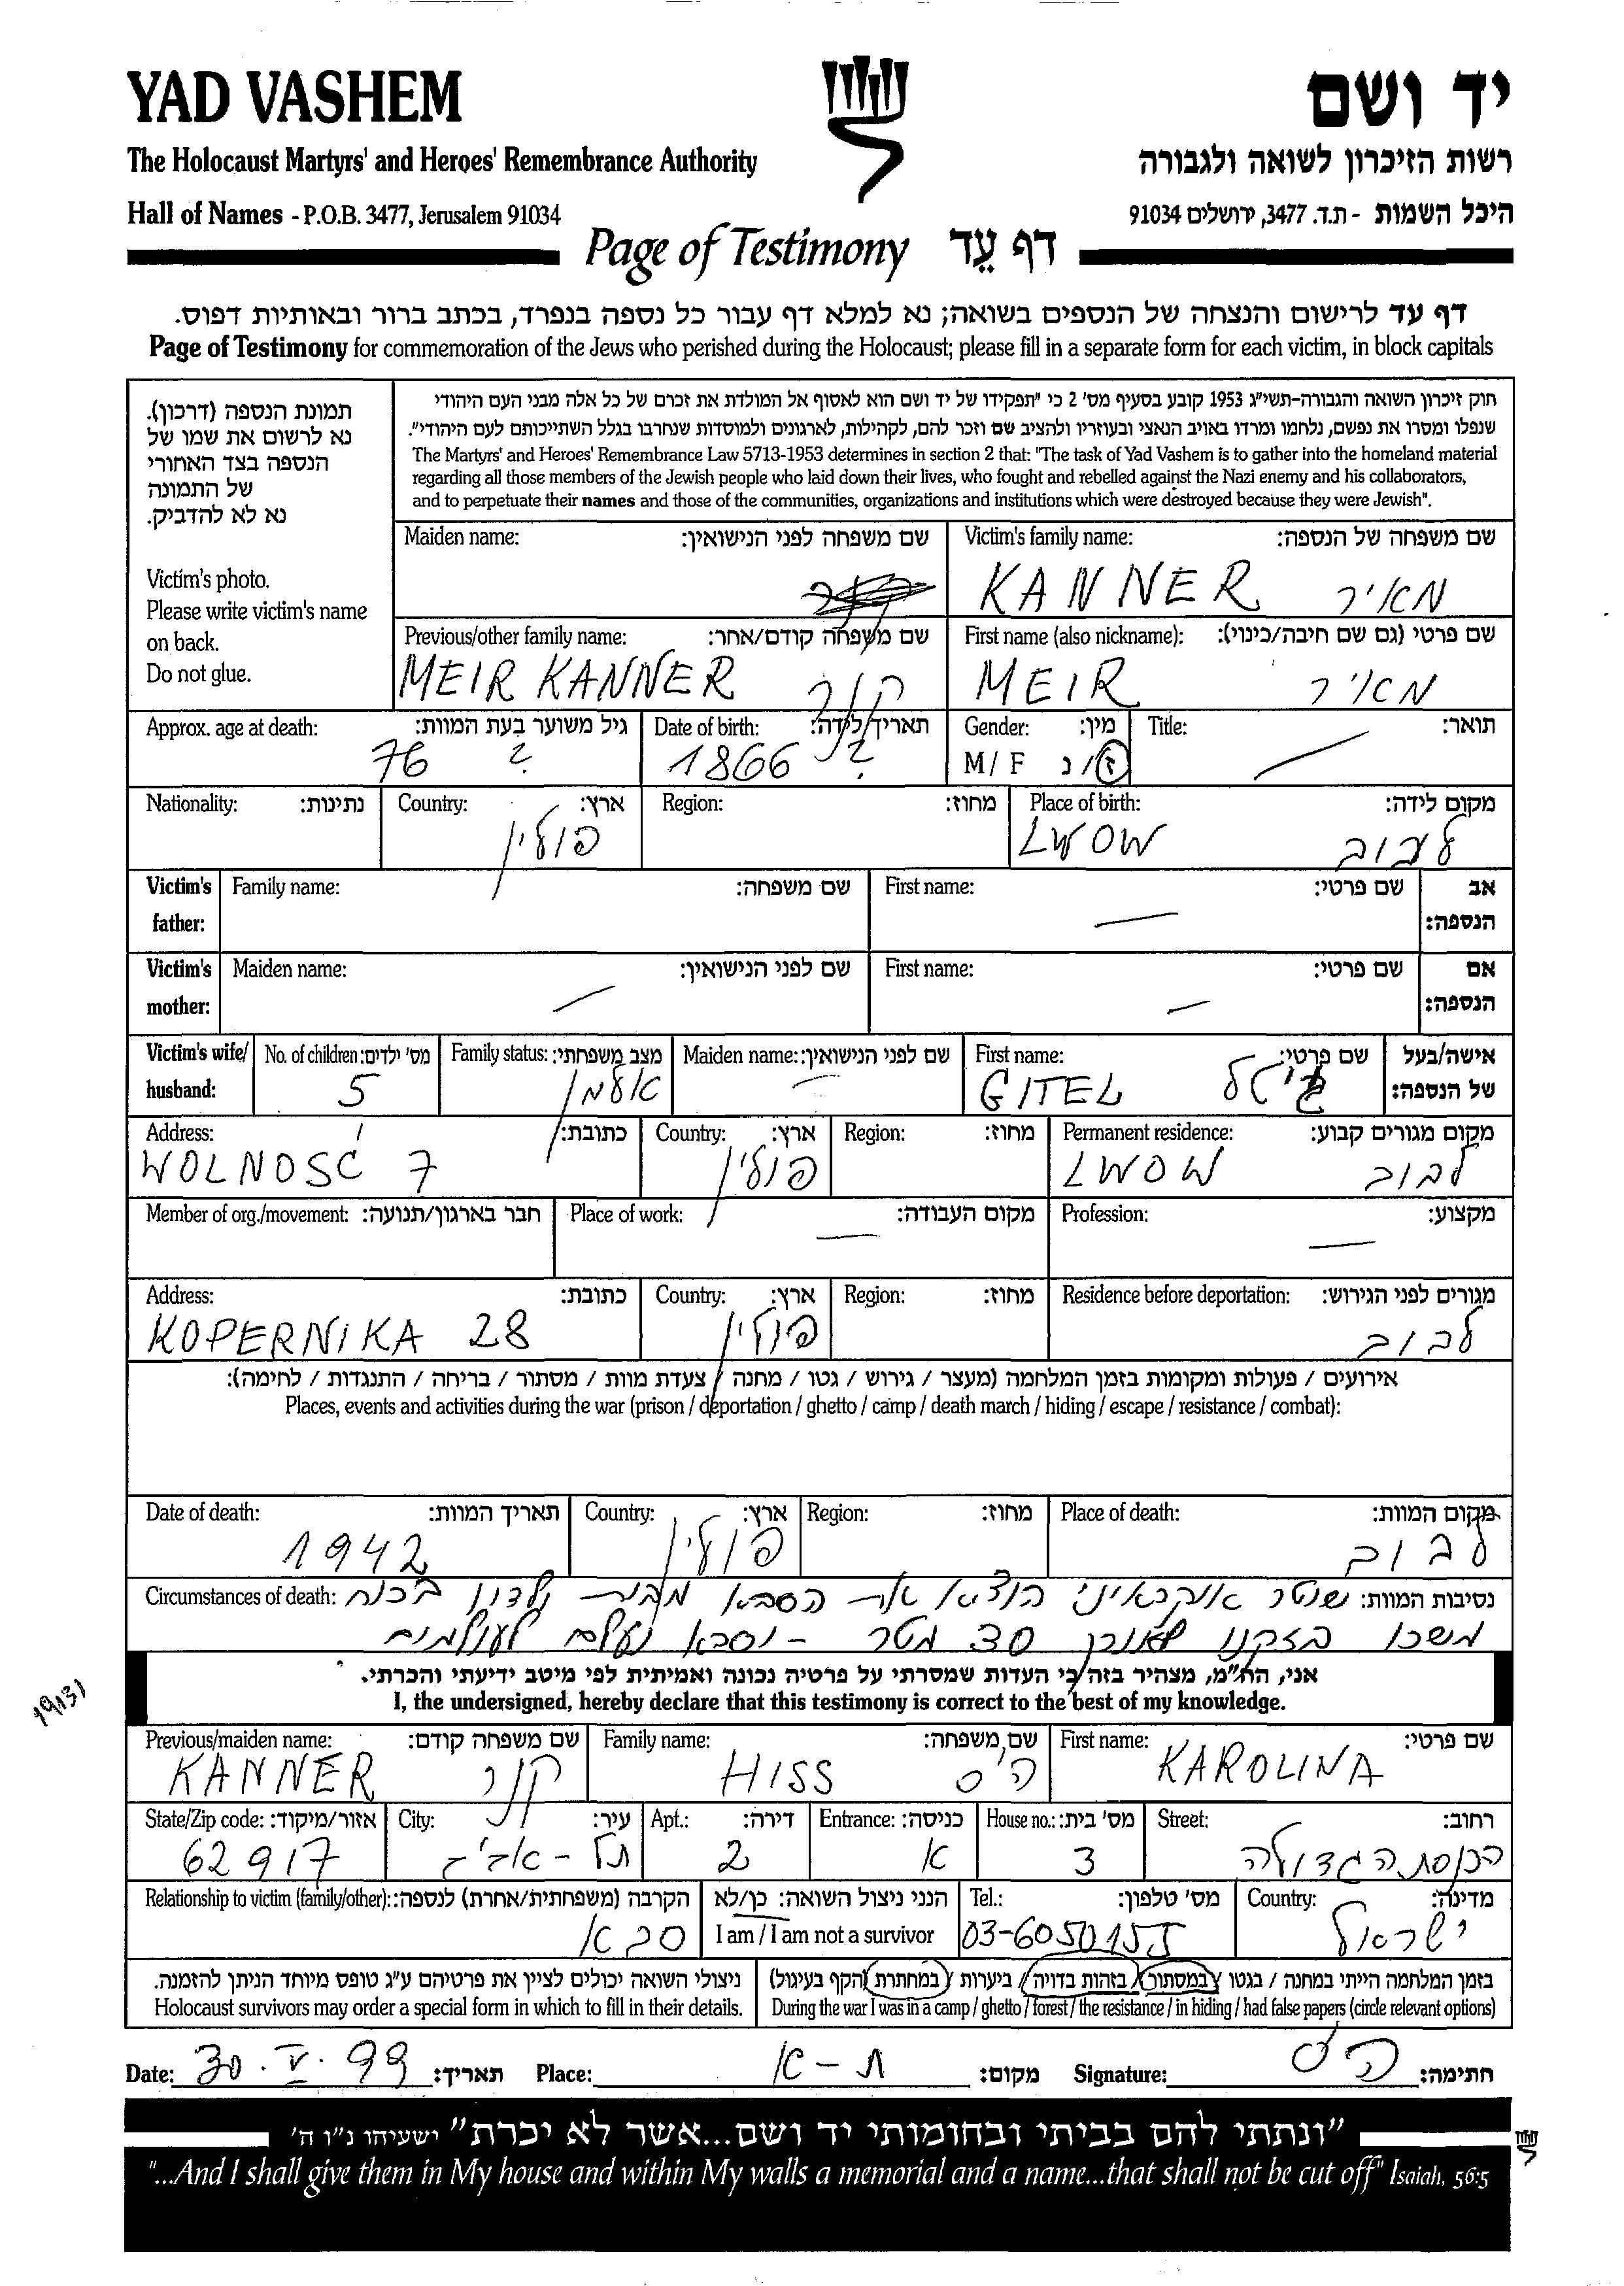 YAD VASHEM
יד ושם
The Holocaust Martyrs' and Heroes' Remembrance Authority
רשות הזיכרון לשואה ולגבורה
Hall of Names - P.O.B. 3477, Jerusalem 91034
היכל השמות - ת.ד. 3477, ירושלים 91034
Page of Testimony דף עֵד
דף עד לרישום והנצחה של הנספים בשואה; נא למלא דף עבור כל נספה בנפרד, בכתב ברור ובאותיות דפוס.
Page of Testimony for commemoration of the Jews who perished during the Holocaust; please fill in a separate form for each victim, in block capitals
תמונת הנספה (דרכון).
נא לרשום את שמו של
הנספה בצד האחורי
של התמונה
נא לא להדביק.
Victim's photo.
Please write victim's name
on back.
Do not glue.
חוק זיכרון השואה והגבורה-תשי"ג 1953 קובע בסעיף מס' 2 כי "תפקידו של יד ושם הוא לאסוף אל המולדת את זכרם של כל אלה מבני העם היהודי
שנפלו ומסרו את נפשם, נלחמו ומרדו באויב הנאצי ובעוזריו ולהציב שם וזכר להם, לקהילות, לארגונים ולמוסדות שנחרבו בגלל השתייכותם לעם היהודי".
The Martyrs' and Heroes' Remembrance Law 5713-1953 determines in section 2 that: "The task of Yad Vashem is to gather into the homeland material
regarding all those members of the Jewish people who laid down their lives, who fought and rebelled against the Nazi enemy and his collaborators,
and to perpetuate their names and those of the communities, organizations and institutions which were destroyed because they were Jewish".
Maiden name: שם משפחה לפני הנישואין:
Victim's family name: שם משפחה של הנספה:
KANNER מאיר
Previous/other family name: שם משפחה קודם/אחר:
MEIR KANNER קנר
First name (also nickname): שם פרטי (גם שם חיבה/כינוי):
MEIR מאיר
Approx. age at death: גיל משוער בעת המוות:
76 ?
Date of birth: תאריך לידה:
1866 ?
Gender: מין:
M / F ז / נ
Title: תואר:
Nationality: נתינות:
Country: ארץ:
פולין
Region: מחוז:
Place of birth: מקום לידה:
LWOW לבוב
Victim's father: Family name: שם משפחה: First name: שם פרטי: אב הנספה:
Victim's mother: Maiden name: שם לפני הנישואין: First name: שם פרטי: אם הנספה:
Victim's wife/ husband: No. of children: מס' ילדים: Family status: מצב משפחתי: Maiden name: שם לפני הנישואין: First name: שם פרטי: אישה/בעל של הנספה:
5 אלמן GITEL גיטל
Address: כתובת: Country: ארץ: Region: מחוז: Permanent residence: מקום מגורים קבוע:
WOLNOŚC 7 פולין LWOW לבוב
Member of org./movement: חבר בארגון/תנועה: Place of work: מקום העבודה: Profession: מקצוע:
Address: כתובת: Country: ארץ: Region: מחוז: Residence before deportation: מגורים לפני הגירוש:
KOPERNIKA 28 פולין לבוב
אירועים / פעולות ומקומות בזמן המלחמה (מעצר / גירוש / גטו / מחנה / צעדת מוות / מסתור / בריחה / התנגדות / לחימה):
Places, events and activities during the war (prison / deportation / ghetto / camp / death march / hiding / escape / resistance / combat):
Date of death: תאריך המוות: Country: ארץ: Region: מחוז: Place of death: מקום המוות:
1942 פולין לבוב
Circumstances of death: נסיבות המוות: שוטר אוקראיני הוציא את הסבא בכוח
משכו בזקנו לאורך 30 מטר - וסבא נעלם לעולמים
אני, הח"מ, מצהיר בזה כי העדות שמסרתי על פרטיה נכונה ואמיתית לפי מיטב ידיעתי והכרתי.
I, the undersigned, hereby declare that this testimony is correct to the best of my knowledge.
Previous/maiden name: שם משפחה קודם: Family name: שם משפחה: First name: שם פרטי:
KANNER קנר HISS היס KAROLINA
State/Zip code: אזור/מיקוד: City: עיר: Apt.: דירה: Entrance: כניסה: House no.: מס' בית: Street: רחוב:
62917 תל-אביב 2 א 3 הכנסת הגדולה
Relationship to victim (family/other): הקרבה (משפחתית/אחרת) לנספה: הנני ניצול השואה: כן/לא Tel.: מס' טלפון: Country: מדינה:
סבא I am / I am not a survivor ישראל
ניצולי השואה יכולים לציין את פרטיהם ע"ג טופס מיוחד הניתן להזמנה.
Holocaust survivors may order a special form in which to fill in their details.
בזמן המלחמה הייתי במחנה / בגטו / במסתור / בזהות בדויה / ביערות / במחתרת (הקף בעיגול)
During the war I was in a camp / ghetto / forest / the resistance / in hiding / had false papers (circle relevant options)
Date: 30.V.99 תאריך: Place: ת-א מקום: Signature: היס חתימה:
"ונתתי להם בביתי ובחומותי יד ושם...אשר לא יכרת" ישעיהו נ"ו ה'
"...And I shall give them in My house and within My walls a memorial and a name...that shall not be cut off" Isaiah, 56:5